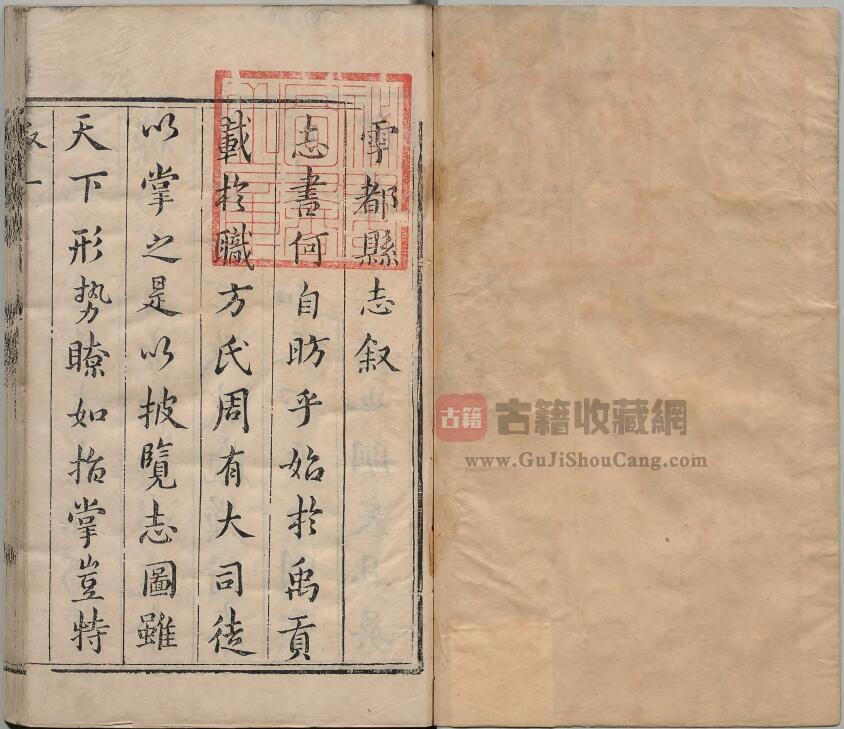 雩都縣志叙
志書何自昉乎始於禹貢
載於職方氏周有大司徒
以掌之是以披覽志圖雖
天下形势瞭如指掌豈特
叙一
古籍 古籍收藏網
www.GuJiShouCang.com